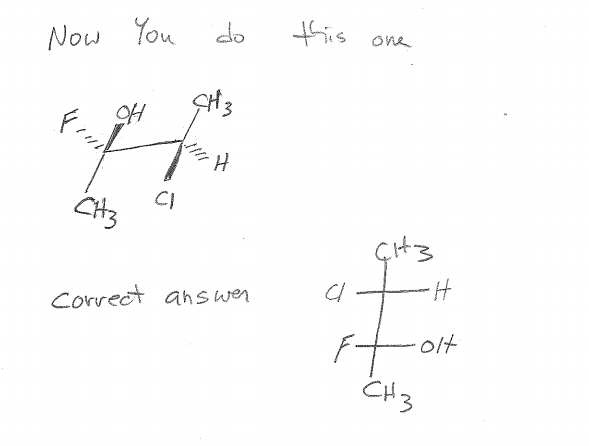 Now You do this one
F OH CH3
H
CH3 Cl
CH3
correct answer Cl H
F OH
CH3